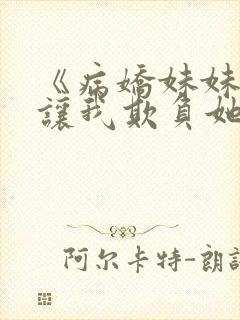 《病嬌妹妹
讓我欺負她
阿尔卡特-朗